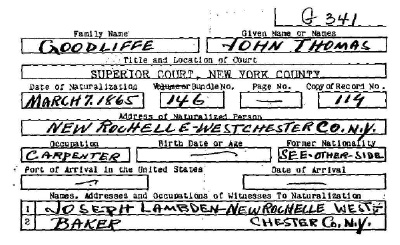 G 341
Family Name Given Name or Names
GOODLIFFE JOHN THOMAS
Title and Location of Court
SUPERIOR COURT, NEW YORK COUNTY
Date of Naturalization Volume or Bundle No. Page No. Copy of Record No.
MARCH 7. 1865 146 — 114
Address of Naturalized Person
NEW ROCHELLE-WESTCHESTER CO. N.Y.
Occupation Birth Date or Age Former Nationality
CARPENTER — SEE-OTHER-SIDE
Port of Arrival in the United States Date of Arrival
— —
Names, Addresses and Occupations of Witnesses To Naturalization
1 JOSEPH LAMBDEN-NEW ROCHELLE WEST=
2 BAKER CHESTER CO, N.Y.